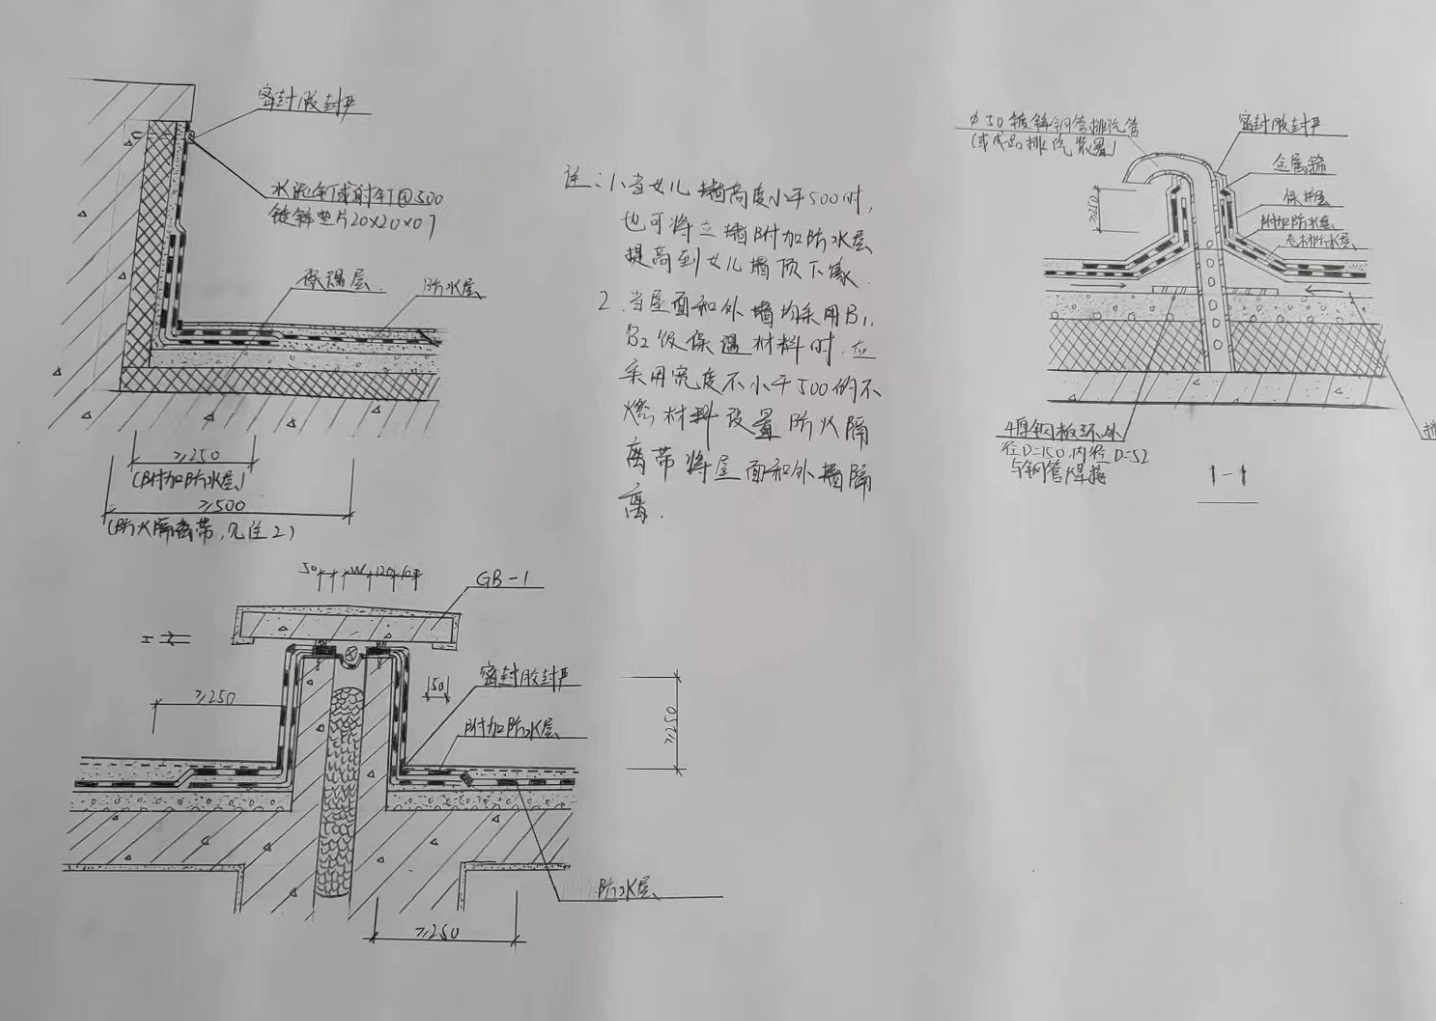 密封胶封严
水泥钉或射钉@500
镀锌垫片20×20×0.7
保温层
防水层
≥250
(附加防水层)
≥500
(防火隔离带,见注2)
注:1.当女儿墙高度小于500时,
也可将立墙附加防水层
提高到女儿墙顶下缘.
2.当屋面和外墙均采用B1,
B2级保温材料时,应
采用宽度不小于500的不
燃材料设置防火隔
离带将屋面和外墙隔
离.
φ50镀锌钢管排汽管
(或成品排汽装置)
密封胶封严
金属箍
保护层
附加防水层
卷材防水层
≥250
4厚钢板环外
径D=150,内径D=52
与钢管焊接
1-1
50
W
120
60
GB-1
≥250
50
密封胶封严
附加防水层
≥250
防水层
≥250